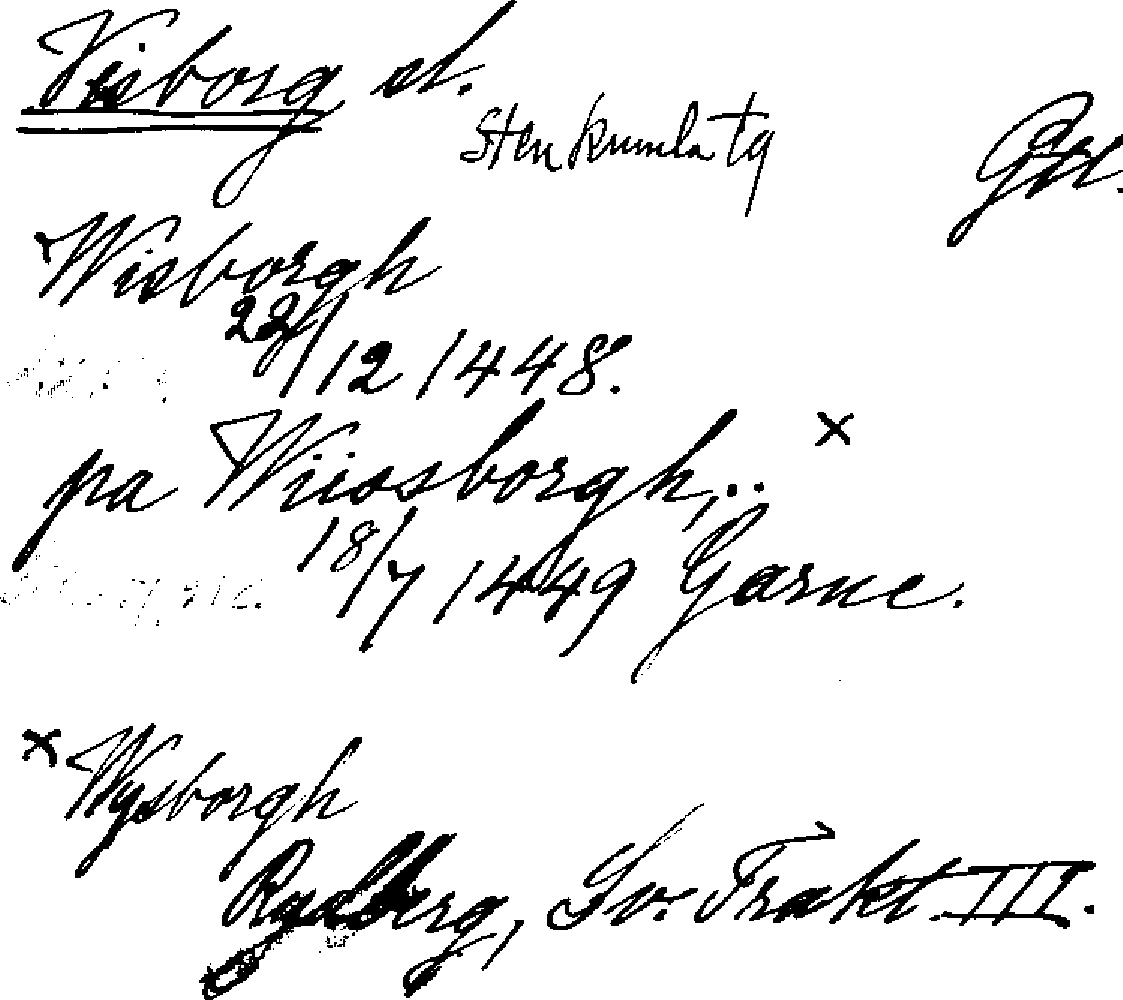 Visborg sl.
Stenkumla tg
Gtl.
Wisborgh
22/12 1448.
pa Wiissborgh,.. x
18/7 1449 Garne.
x Wysborgh
Rydberg, Sv. Trakt. III.